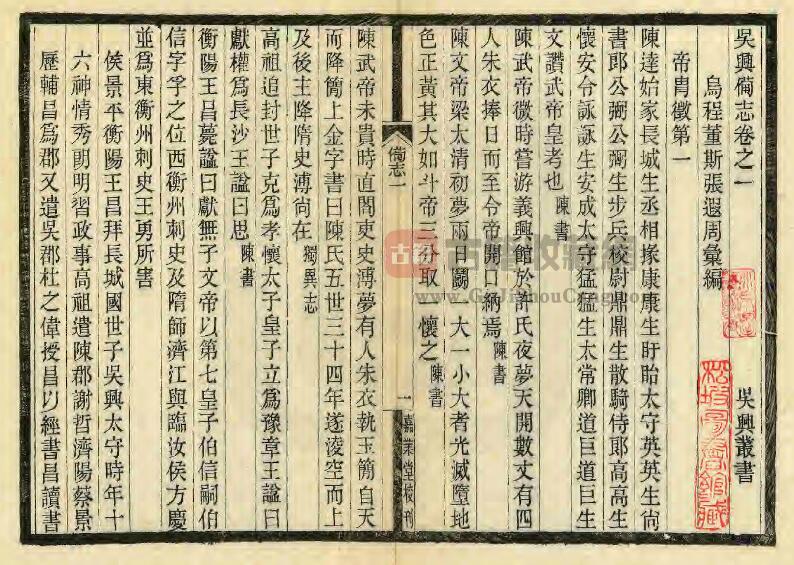 吳興備志卷之一　吳興叢書
烏程董斯張遐周彙編
帝胄徵第一
陳達始家長城生丞相掾康康生盱眙太守英英生尚
書郎公弼公弼生步兵校尉鼎鼎生散騎侍郎高高生
懷安令詠詠生安成太守猛猛生太常卿道巨道巨生
文讚武帝皇考也陳書
陳武帝微時嘗游義興館於許氏夜夢天開數丈有四
人朱衣捧日而至令帝開口納焉陳書
陳文帝梁太清初夢兩日鬬　大一小大者光滅墮地
色正黃其大如斗帝三分取　懷之陳書
備志一
一
嘉業堂校刊
陳武帝未貴時直閤吏史溥夢有人朱衣執玉簡自天
而降簡上金字書曰陳氏五世三十四年遂淩空而上
及後主降隋史溥尚在獨異志
高祖追封世子克爲孝懷太子皇子立爲豫章王諡曰
獻權爲長沙王諡曰思陳書
衡陽王昌薨諡曰獻無子文帝以第七皇子伯信嗣伯
信字孚之位西衡州刺史及隋師濟江與臨汝侯方慶
並爲東衡州刺史王勇所害
侯景平衡陽王昌拜長城國世子吳興太守時年十
六神情秀朗明習政事高祖遣陳郡謝哲濟陽蔡景
歷輔昌爲郡又遣吳郡杜之偉授昌以經書昌讀書
古籍
古書收藏網
www.GuJiShouCang.com